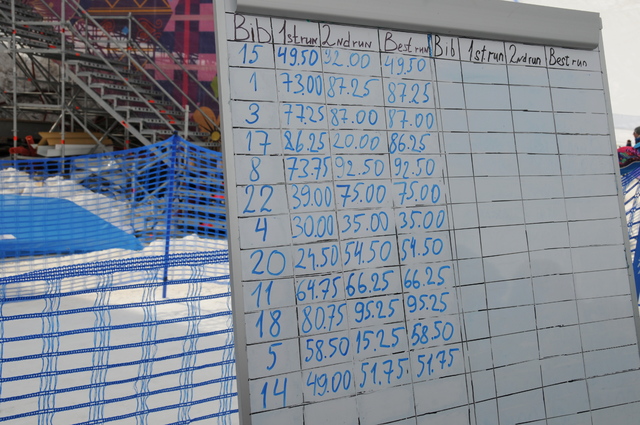 Bib 1st run 2nd run Best run Bib 1st run 2nd run Best run
15 49.50 32.00 49.50
1 73.00 87.25 87.25
3 77.25 87.00 87.00
17 86.25 20.00 86.25
8 73.75 92.50 92.50
22 39.00 75.00 75.00
4 30.00 35.00 35.00
20 24.50 54.50 54.50
11 64.75 66.25 66.25
18 80.75 95.25 95.25
5 58.50 15.25 58.50
14 49.00 51.75 51.75